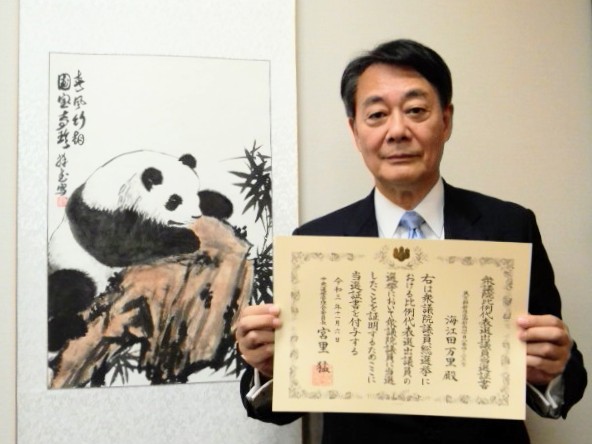 春風竹翔
國宝奇珍
衆議院比例代表選出議員当選証書
海江田万里殿
右は衆議院議員総選挙に
おける比例代表選出議員の
選挙において衆議院議員に当選
したことを証明するためここに
当選証書を付与する
令和三年十一月六日
中央選挙管理会委員長
宮里猛